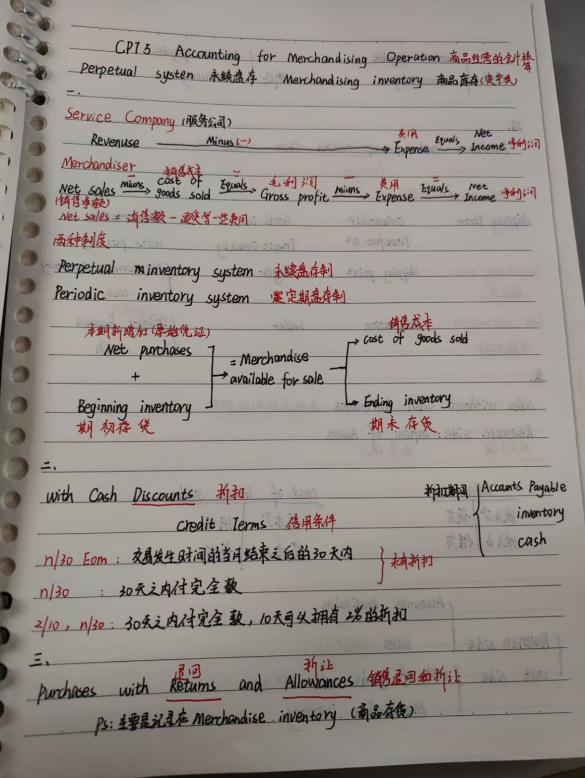 CPT5 Accounting for Merchandising Operation 商品经营的会计核算
Perpetual system 永续盘存 Merchandising inventory 商品库存
一、
Service Company (服务公司)
Revenuse Minus(一) 费用 Expense Equals Net Income 净利润
Merchandiser
Net sales (销售净额) minus 销售成本 cost of goods sold Equals 毛利润 Gross profit minus 费用 Expense Equals Net Income 净利润
Net sales = 销售额 - 退货等一些费用
两种制度
Perpetual inventory system 永续盘存制
Periodic inventory system 定期盘存制
本期新增加(原始凭证) 销售成本
Net purchases cost of goods sold
+ = Merchandise available for sale
Beginning inventory Ending inventory
期初存货 期末存货
二、
with Cash Discounts 折扣 折扣期间 Accounts Payable
inventory
Credit Terms 信用条件 cash
n/30 Eom: 交易发生时间的当月结束之后的30天内
没有折扣
n/30: 30天之内付完全款
2/10, n/30: 30天之内付完全款, 10天可以拥有2%的折扣
三、
退回 折让
Purchases with Returns and Allowances 销售退回和折让
Ps: 主要是记录在Merchandise inventory (商品存货)